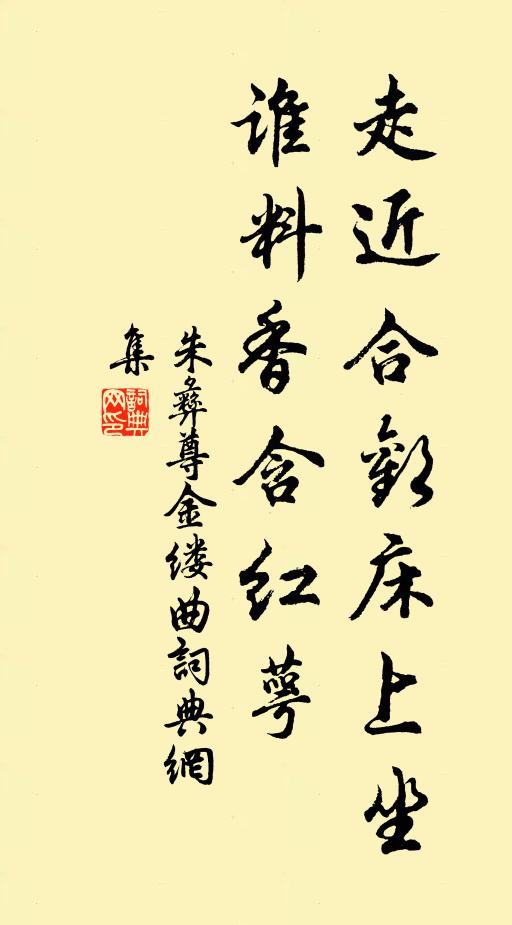 走近合歡床上坐
谁料香含红萼
朱彝尊金缕曲詞典網
集
詞典網印